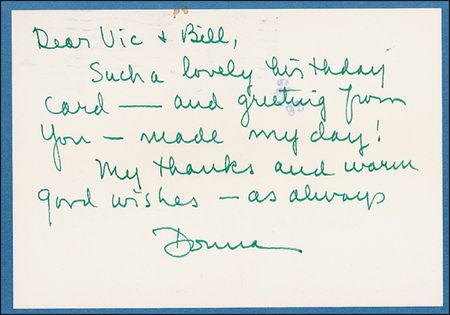 Dear Vic + Bill,
Such a lovely birthday
card — and greeting from
you — made my day!
My thanks and warm
good wishes — as always
Donna